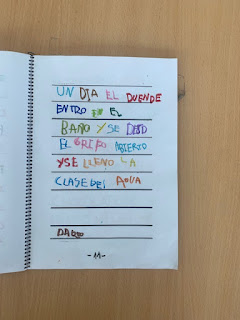 UN DIA EL DUENDE
ENTRO EN EL
BAÑO Y SE DEJO
EL GRIFO ABIERTO
Y SE LLENO LA
CLASE DE AGUA
DARIO
-11-